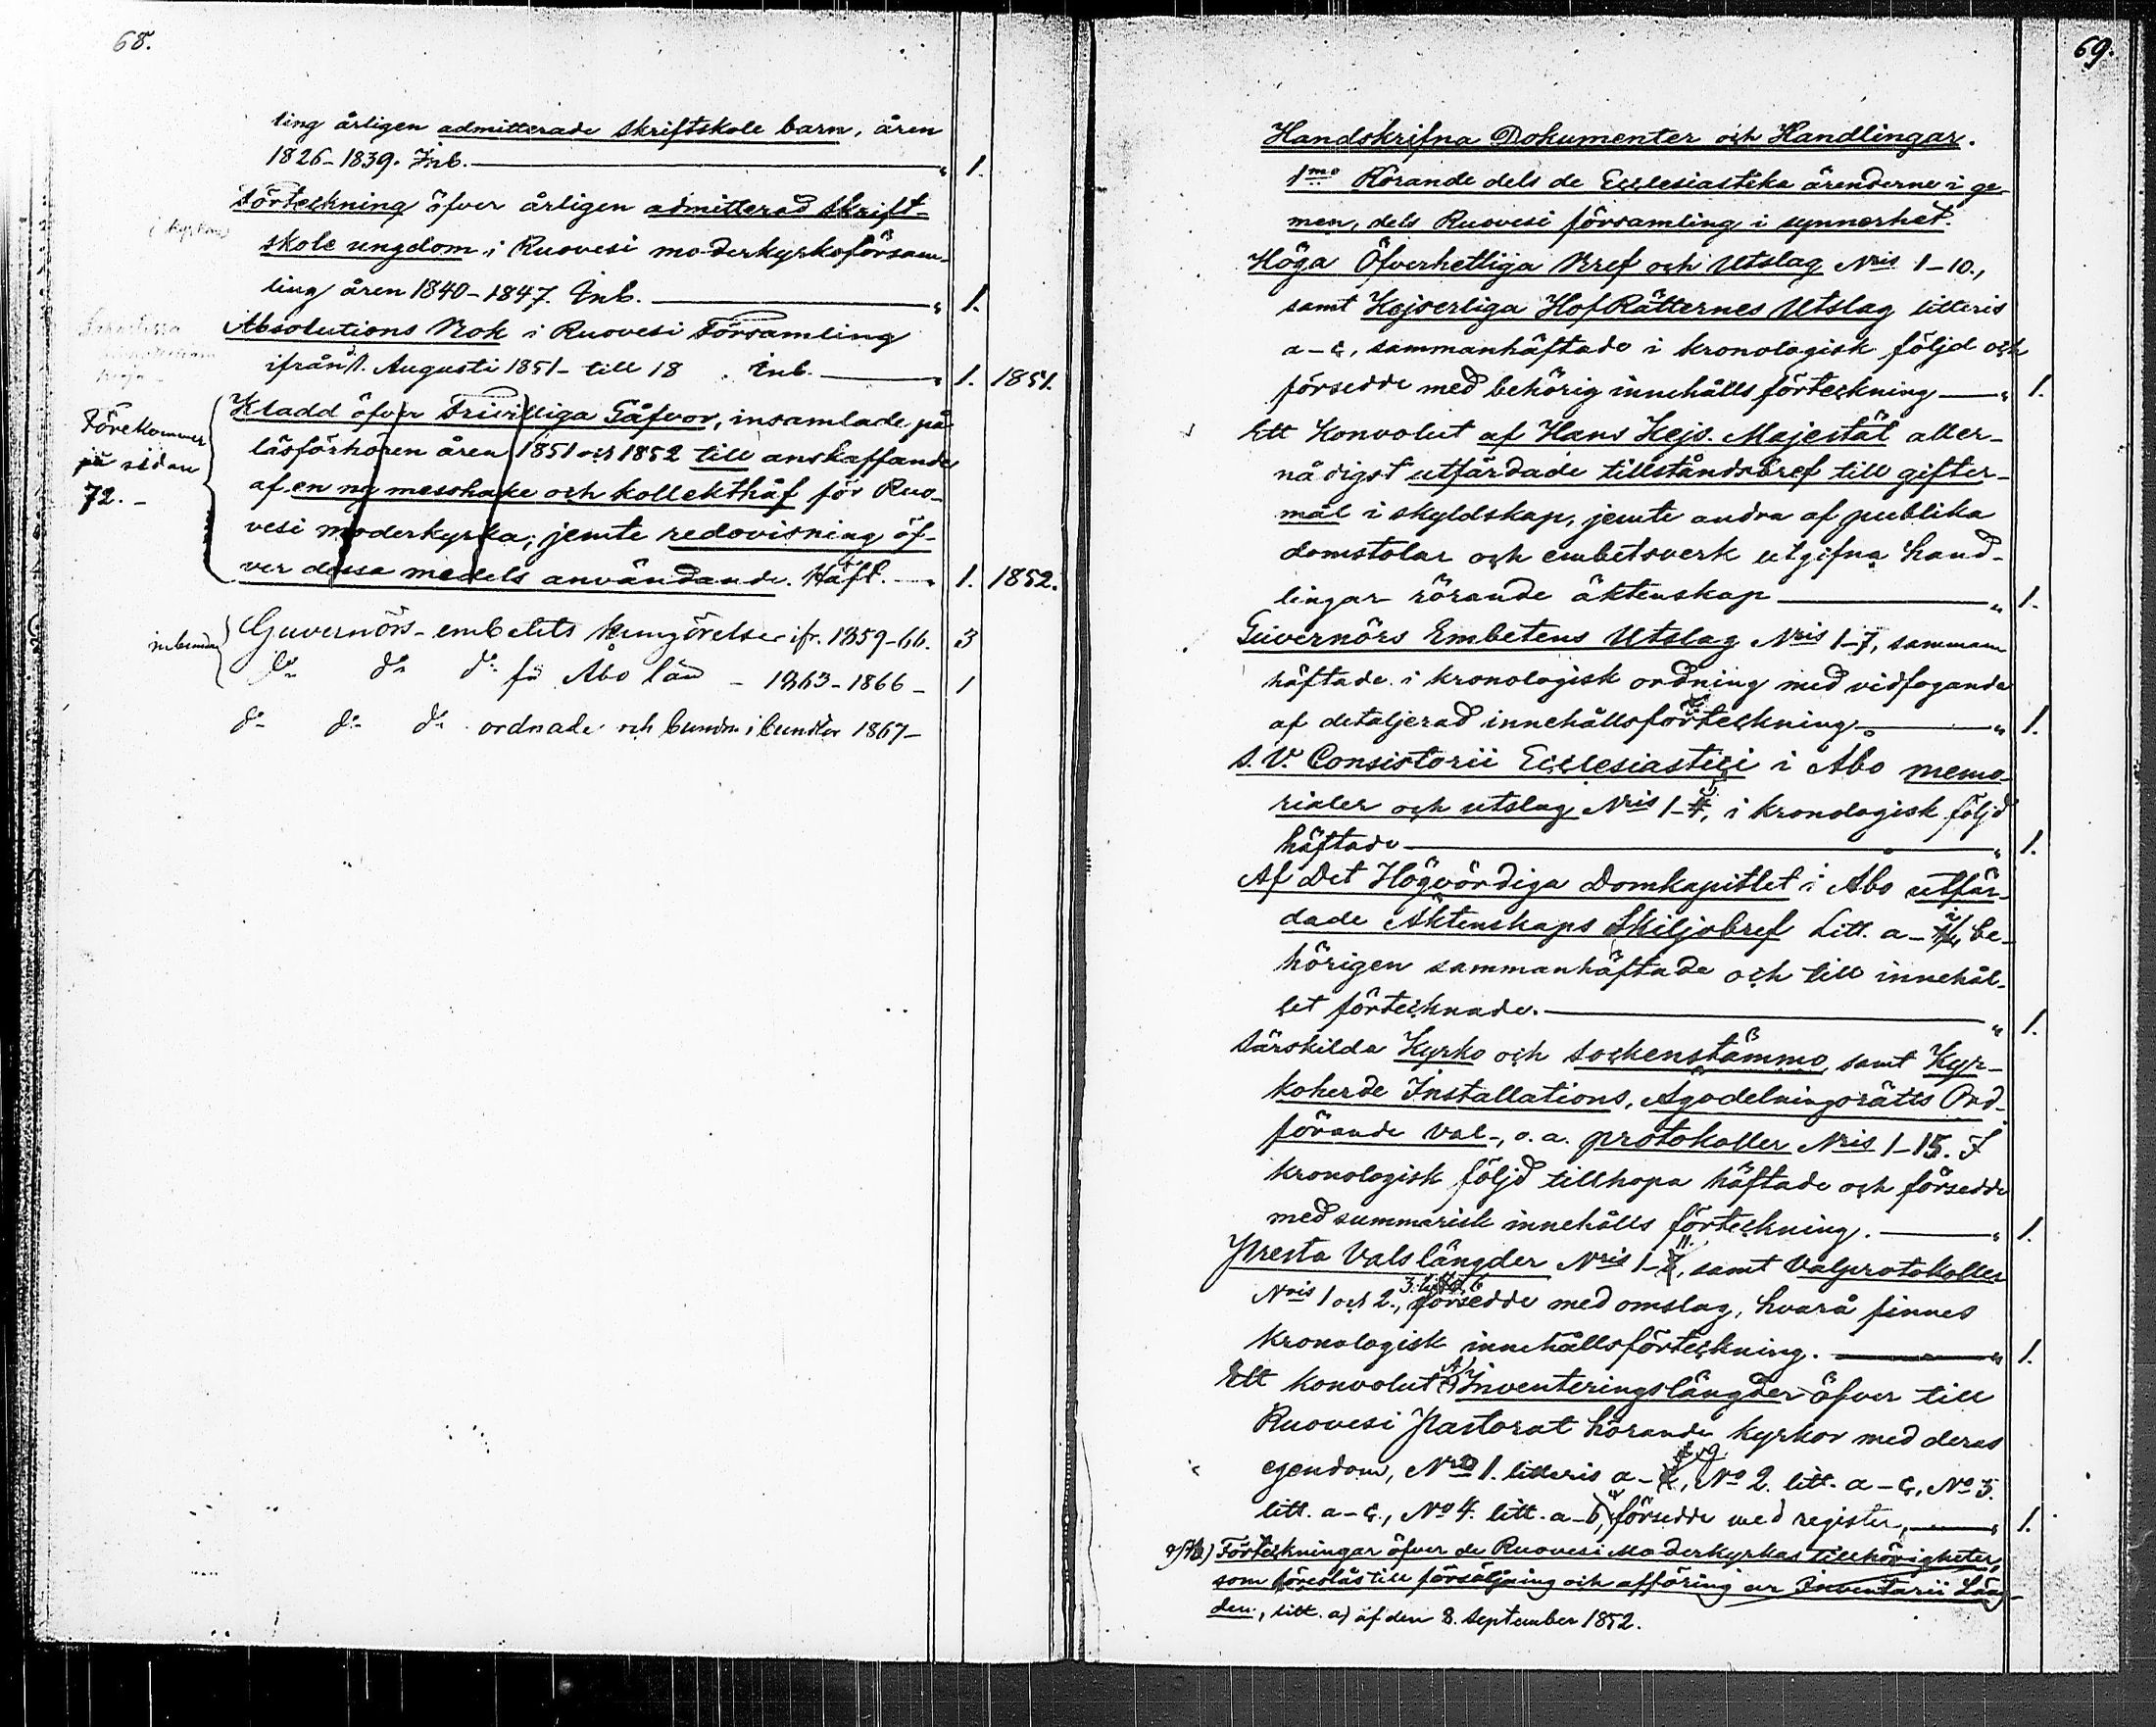 68.
ling årligen admitterade skriftskole barn, åren
1826-1839. Inb. „ 1.
Förteckning öfver årligen admitterad skrift-
skole ungdom i Ruovesi moderkyrkoförsam-
ling åren 1840-1847. Inb. „ 1.
Absolutions Bok i Ruovesi Församling
ifrån 1. Augusti 1851- till 18 . Inb. „ 1. 1851.
Förekommer
på sidan
72.-
Kladd öfver Frivilliga Gåfvor, insamlade på
läsförhören åren 1851 och 1852 till anskaffande
af en ny messhake och kollekthåf för Ruo-
vesi moderkyrka, jemte redovisning öf-
ver dessa medels användande. Häft. „ 1. 1852.
inbundna
Guvernörs-embetets kungörelser ifr. 1859-66. 3
do do do för Åbo län - 1863-1866 - 1
do do do ordnade och bundna i bundtar 1867-
69.
Handskrifna Dokumenter och Handlingar.
1mo Rörande dels de Ecclesiastika ärenderne i ge-
men, dels Ruovesi församling i synnerhet.
Höga Öfverhetliga Bref och Utslag Nris 1-10.,
samt Kejserliga HofRätternes Utslag litteris
a-c, sammanhäftade i kronologisk följd och
försedde med behörig innehålls förteckning „ 1.
Ett Konvolut af Hans Kejs. Majestät aller-
nådigst utfärdade tillståndsbref till gifter-
mål i skyldskap, jemte andra af publika
domstolar och embetsverk utgifna hand-
lingar rörande äktenskap „ 1.
Guvernörs Embetens Utslag Nris 1-7, samman
häftade i kronologisk ordning med vidfogande
af detaljerad innehållsförteckning „ 1.
S. V. Consistorii Ecclesiastici i Åbo memo-
rialer och utslag Nris 1-4, i kronologisk följd
häftade „ 1.
Af Det Högvördiga Domkapitlet i Åbo utfär-
dade Äktenskaps Skiljobref Litt. a- be-
hörigen sammanhäftade och till innehål-
let förtecknade. „ 1.
Särskilda Kyrko och sockenstämmo, samt Kyr-
koherde Installations, Ägodelningsrätts Ord-
förande val-, o.a. protokoller Nris 1-15. I
kronologisk följd tillhopa häftade och försedde
med summarisk innehålls förteckning. „ 1.
Presta Valslängder Nris 1- 11. samt Valprotokoller
Nris 1 och 2., försedde med omslag, hvarå finnes
kronologisk innehållsförteckning. „ 1.
Ett konvolut Inventeringslängder öfver till
Ruovesi Pastorat hörande kyrkor med deras
egendom, Nro 1. litteris a- , No 2. litt. a-c, No 3.
litt. a-c., No 4. litt. a-b, försedde med register, „ 1.
Förteckningar öfver de Ruovesi Moderkyrkas tillhörigheter,
som föreslås till försäljning och afföring ur Inventarii Läng-
den, litt. a) af den 8. September 1852.